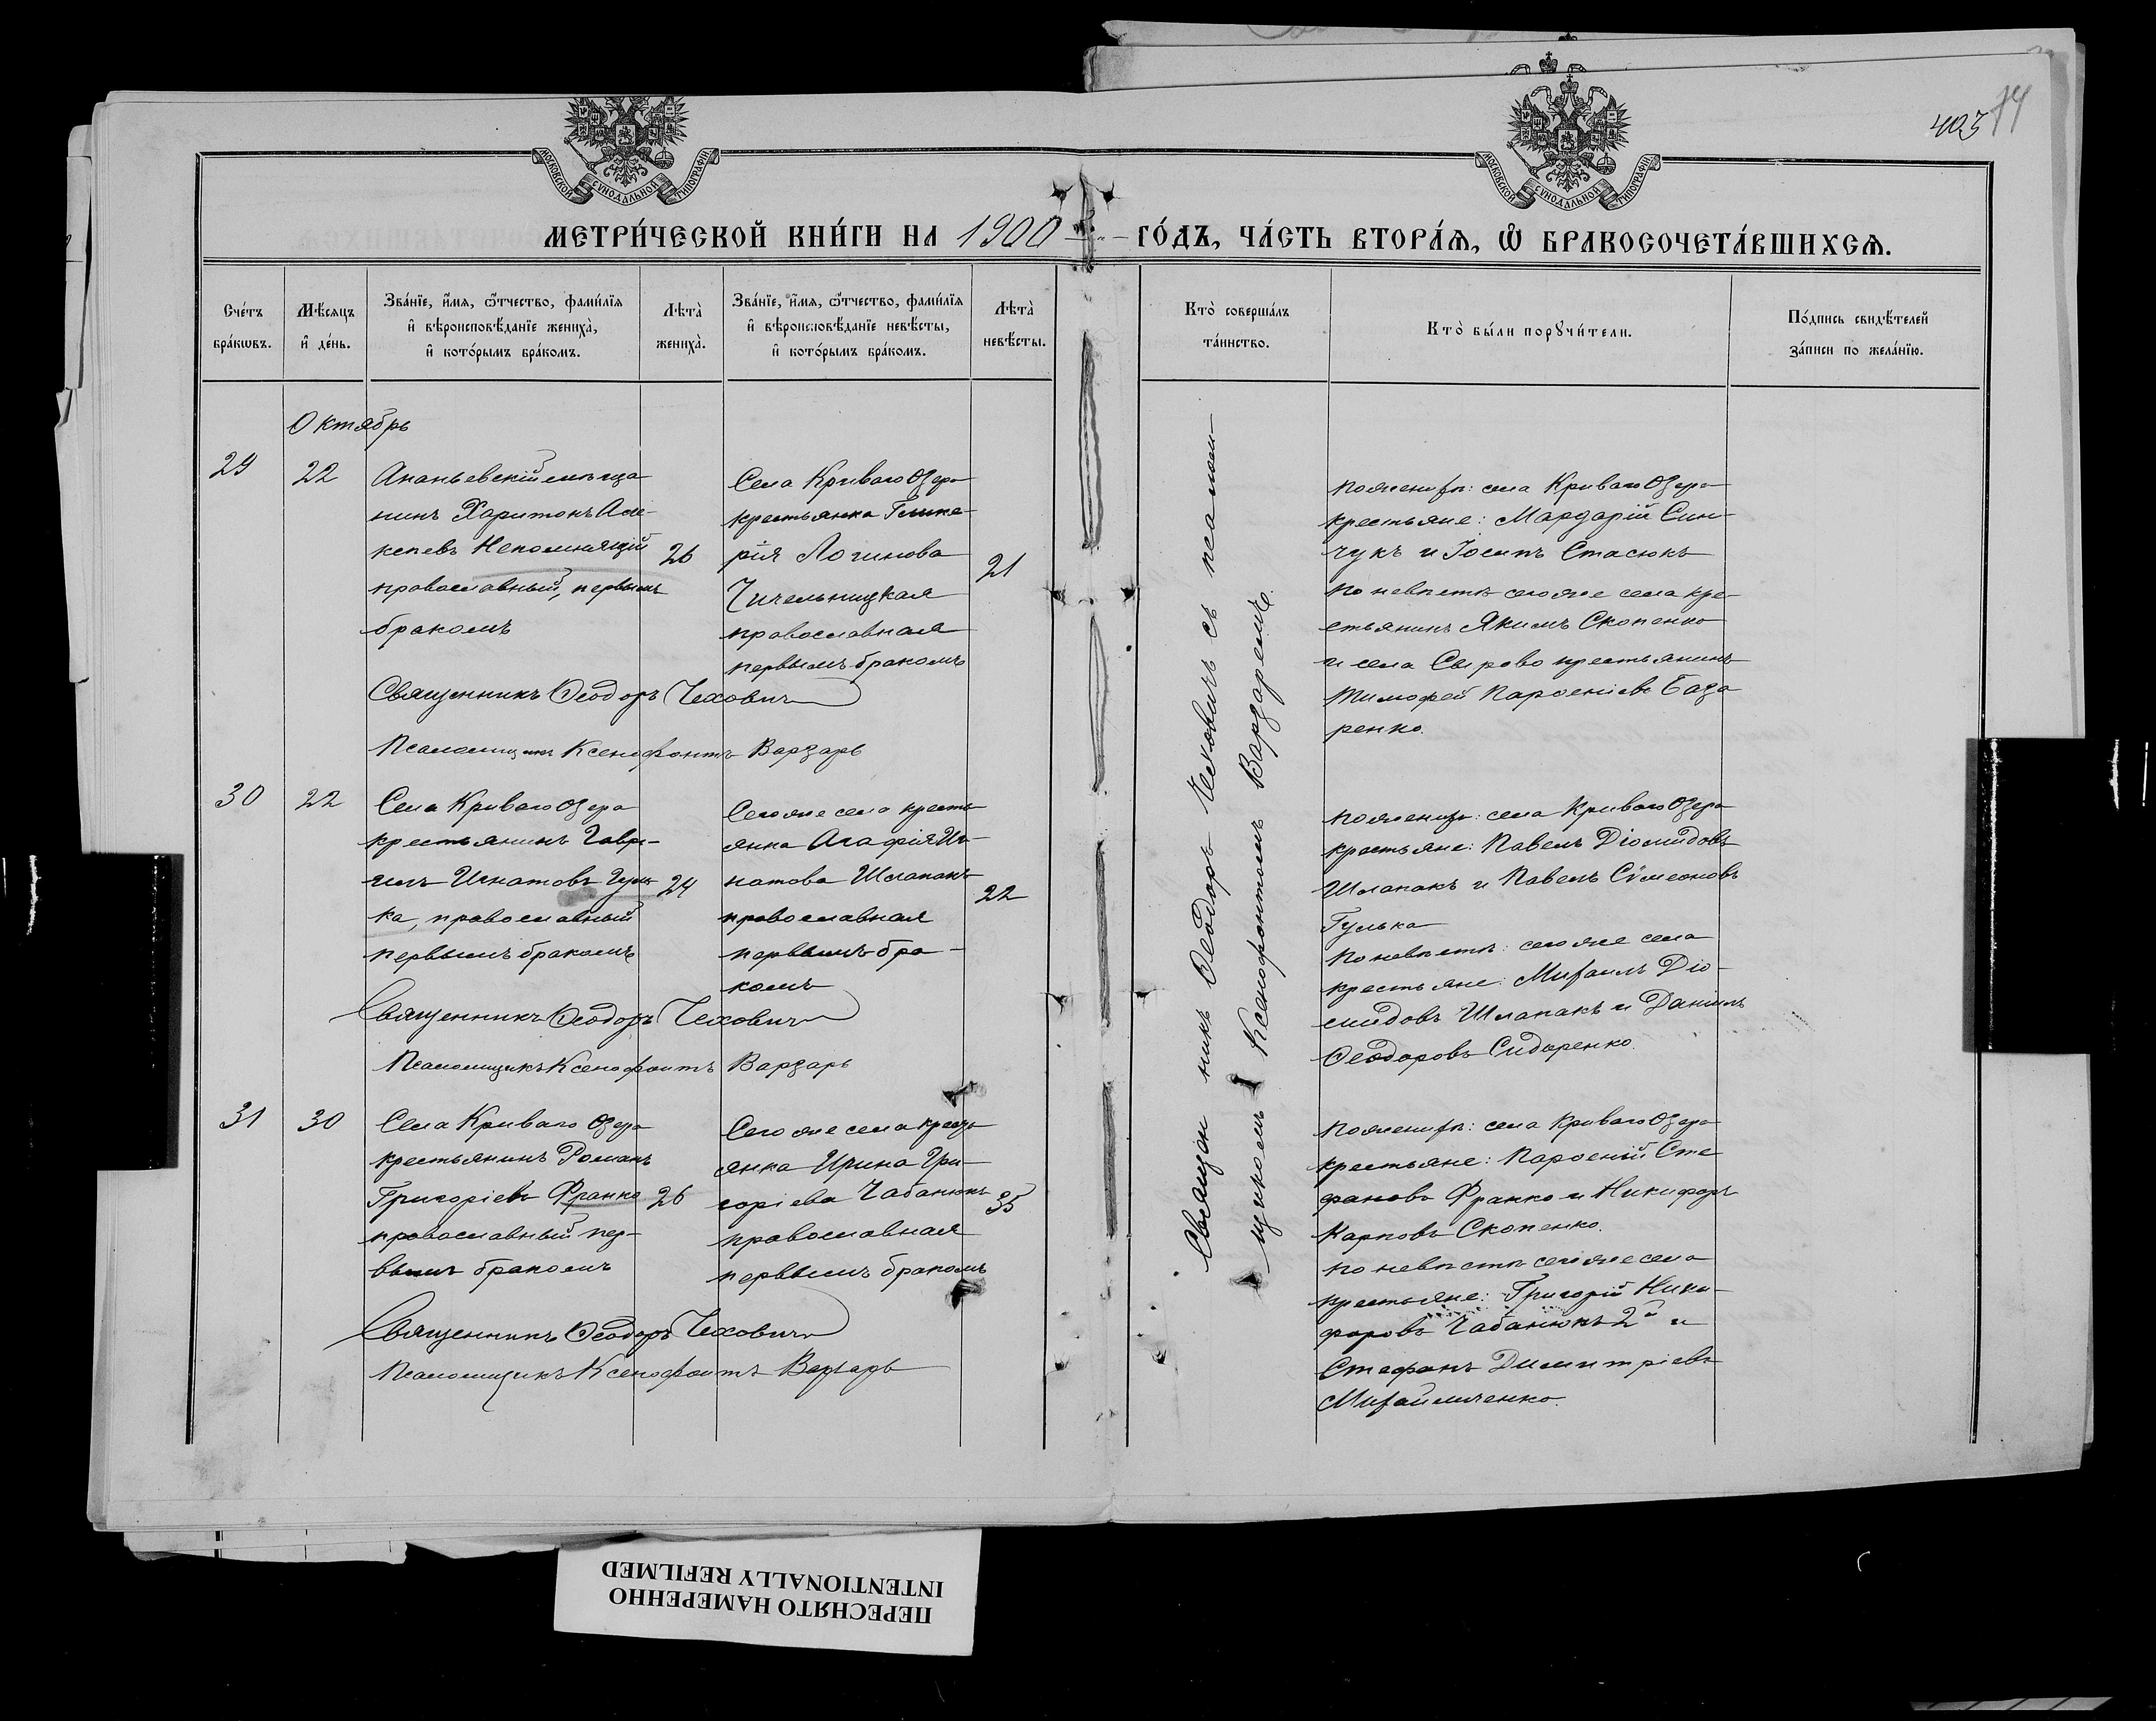 403 74
МОСКОВСКОЙ СУНОДАЛЬНОЙ ТИПОГРАФІИ
МОСКОВСКОЙ СУНОДАЛЬНОЙ ТИПОГРАФІИ
МЕТРИ́ЧЕСКОЙ КНИ́ГИ НА 1900 ГО́ДЪ, ЧА́СТЬ ВТОРА́Ѧ, Ѽ БРАКОСОЧЕТА́ВШИХСѦ.
Сче́тъ
бра́кѡвъ.
Мѣ́сяцъ
и҆ де́нь.
Зва́нїе, и҆́мя, ѻ҆́тчество, фами́лїя
и҆ вѣроисповѣ́данїе жениха̀,
и҆ кото́рымъ бра́комъ.
Лѣта̀
жениха̀.
Зва́нїе, и҆́мя, ѻ҆́тчество, фами́лїя
и҆ вѣроисповѣ́данїе невѣ́сты,
и҆ кото́рымъ бра́комъ.
Лѣта̀
невѣ́сты.
Кто̀ соверша́лъ
та́инство.
Кто̀ бы́ли порꙋчи́тели.
По́дпись свидѣ́телей
за́писи по жела́нїю.
Октябрь
29
22
Ананьевскій мѣща
нинъ Харитонъ Але-
ксѣевъ Непомнящій
православный, первымъ
бракомъ
26
Села Криваго Озера
крестьянка Глике-
рія Логинова
Чичельницкая
православная
первымъ бракомъ
21
Священникъ Ѳеодоръ Чеховичъ
Псаломщикъ Ксенофонтъ Варзарь
по женихѣ: села Криваго Озера
крестьяне: Мардарій Син-
чукъ и Іосипъ Стасюкъ
по невѣстѣ того же села кре-
стьянинъ Якимъ Скопенко
и села Сырово крестьянинъ
Тимофей Парѳеніевъ База
ренко.
30
22
Села Криваго Озера
крестьянинъ Гаврі-
илъ Игнатовъ Гуль
ка, православный
первымъ бракомъ
24
Того же села кресть
янка Агафія Иг-
натова Шлапакъ
православная
первымъ бра-
комъ
22
Священникъ Ѳеодоръ Чеховичъ
Псаломщикъ Ксенофонтъ Варзарь
по женихѣ: села Криваго Озера
крестьяне: Павелъ Діомидовъ
Шлапакъ и Павелъ Сѵмеоновъ
Гулька
по невѣстѣ: того же села
крестьяне: Михаилъ Діо-
мидовъ Шлапакъ и Даніилъ
Ѳеодоровъ Сидоренко.
31
30
Села Криваго Озера
крестьянинъ Романъ
Григоріевъ Франко
православный пер-
вымъ бракомъ
26
Того же села кресть
янка Ирина Гри-
горіева Чабанюкъ
православная
первымъ бракомъ
35
Священникъ Ѳеодоръ Чеховичъ
Псаломщикъ Ксенофонтъ Варзарь
по женихѣ: села Криваго Озера
крестьяне: Парѳеній Сте
фановъ Франко и Никифоръ
Карповъ Скопенко.
по невѣстѣ того же села
крестьяне: Григорій Ники-
форовъ Чабанюкъ 2й и
Стефанъ Димитріевъ
Михайличенко.
Священникъ Ѳеодоръ Чеховичъ съ псалом-
щикомъ Ксенофонтомъ Варзаремъ.
ПЕРЕСНЯТО НАМЕРЕННО
INTENTIONALLY REFILMED